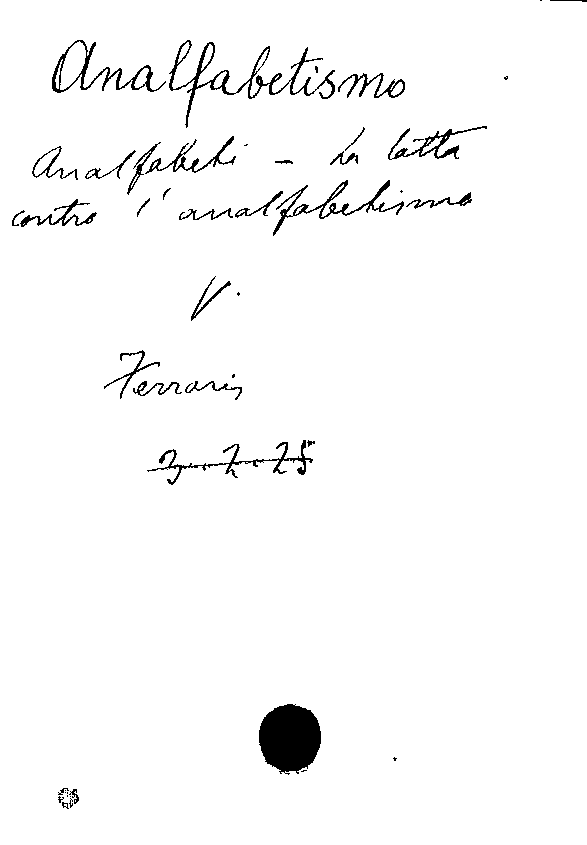 Analfabetismo
Analfabeti - La lotta
contro l'analfabetismo
V.
Ferraris
3.2.25